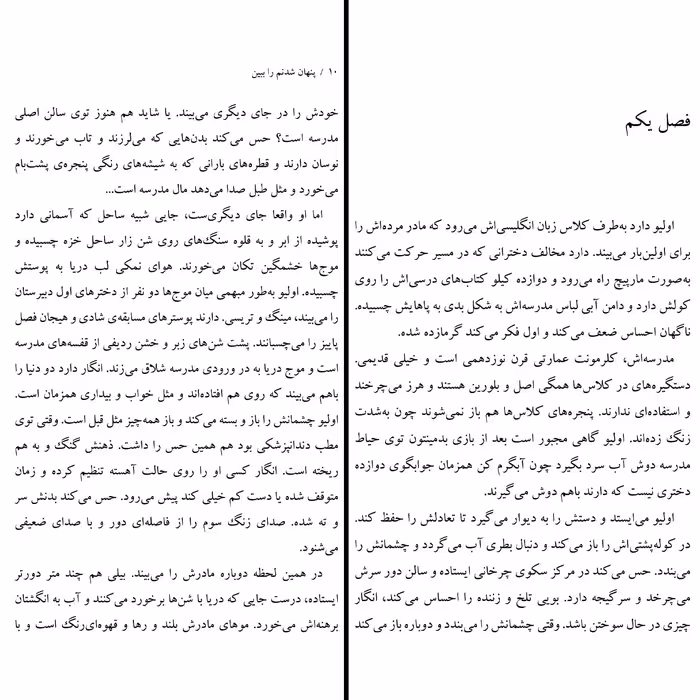 فصل یکم
اولیو دارد به‌طرف کلاس زبان انگلیسی‌اش می‌رود که مادر مرده‌اش را
برای اولین‌بار می‌بیند. دارد مخالف دخترانی که در مسیر حرکت می‌کنند
به‌صورت مارپیچ راه می‌رود و دوازده کیلو کتاب‌های درسی‌اش را روی
کولش دارد و دامن آبی لباس مدرسه‌اش به شکل بدی به پاهایش چسبیده.
ناگهان احساس ضعف می‌کند و اول فکر می‌کند گرمازده شده.
مدرسه‌اش، کلرمونت عمارتی قرن نوزدهمی است و خیلی قدیمی.
دستگیره‌های در کلاس‌ها همگی اصل و بلورین هستند و هرز می‌چرخند
و استفاده‌ای ندارند. پنجره‌های کلاس‌ها هم باز نمی‌شوند چون به‌شدت
زنگ زده‌اند. اولیو گاهی مجبور است بعد از بازی بدمینتون توی حیاط
مدرسه دوش آب سرد بگیرد چون آبگرم کن همزمان جوابگوی دوازده
دختری نیست که دارند باهم دوش می‌گیرند.
اولیو می‌ایستد و دستش را به دیوار می‌گیرد تا تعادلش را حفظ کند.
در کوله‌پشتی‌اش را باز می‌کند و دنبال بطری آب می‌گردد و چشمانش را
می‌بندد. حس می‌کند در مرکز سکوی چرخانی ایستاده و سالن دور سرش
می‌چرخد و سرگیجه دارد. بویی تلخ و زننده را احساس می‌کند، انگار
چیزی در حال سوختن باشد. وقتی چشمانش را می‌بندد و دوباره باز می‌کند
۱۰ / پنهان شدنم را ببین
خودش را در جای دیگری می‌بیند. یا شاید هم هنوز توی سالن اصلی
مدرسه است؟ حس می‌کند بدن‌هایی که می‌لرزند و تاب می‌خورند و
نوسان دارند و قطره‌های بارانی که به شیشه‌های رنگی پنجره‌ی پشت‌بام
می‌خورد و مثل طبل صدا می‌دهد مال مدرسه است...
اما او واقعا جای دیگری‌ست، جایی شبیه ساحل که آسمانی دارد
پوشیده از ابر و به قلوه سنگ‌های روی شن زار ساحل خزه چسبیده و
موج‌ها خشمگین تکان می‌خورند. هوای نمکی لب دریا به پوستش
چسبیده. اولیو به‌طور مبهمی میان موج‌ها دو نفر از دخترهای اول دبیرستان
را می‌بیند، مینگ و تریسی. دارند پوسترهای مسابقه‌ی شادی و هیجان فصل
پاییز را می‌چسبانند. پشت شن‌های زبر و خشن ردیفی از قفسه‌های مدرسه
است و موج دریا به در ورودی مدرسه شلاق می‌زند. انگار دارد دو دنیا را
باهم می‌بیند که روی هم افتاده‌اند و مثل خواب و بیداری همزمان است.
اولیو چشمانش را باز و بسته می‌کند و باز همه‌چیز مثل قبل است. وقتی توی
مطب دندانپزشکی بود هم همین حس را داشت. ذهنش گنگ و به هم
ریخته است. انگار کسی او را روی حالت آهسته تنظیم کرده و زمان
متوقف شده یا دست کم خیلی کند پیش می‌رود. حس می‌کند بدنش سر
و ته شده. صدای زنگ سوم را از فاصله‌ای دور و با صدای ضعیفی
می‌شنود.
در همین لحظه دوباره مادرش را می‌بیند. بیلی هم چند متر دورتر
ایستاده، درست جایی که دریا با شن‌ها برخورد می‌کنند و آب به انگشتان
برهنه‌اش می‌خورد. موهای مادرش بلند و رها و قهوه‌ای‌رنگ است و با